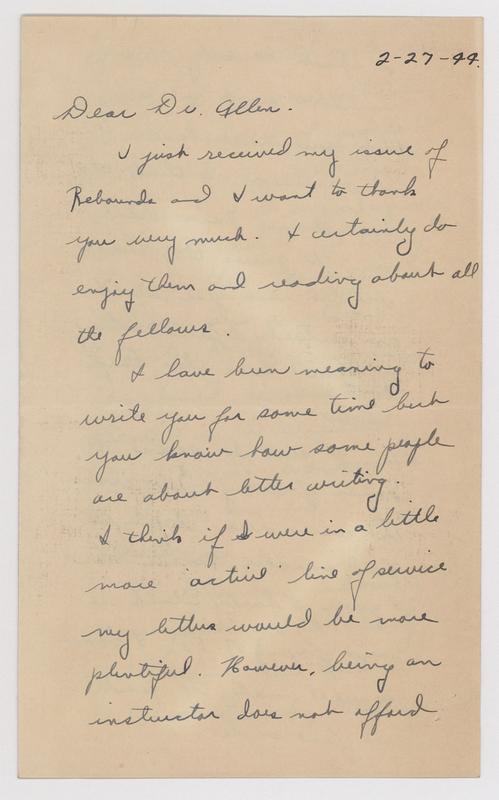 2-27-44.
Dear Dr. Allen.
I just received my issue of
Rebounds and I want to thank
you very much. I certainly do
enjoy them and reading about all
the fellows.
I have been meaning to
write you for some time but
you know how some people
are about letter writing.
I think if I were in a little
more "active" line of service
my letters would be more
plentiful. However, being an
instructor does not afford